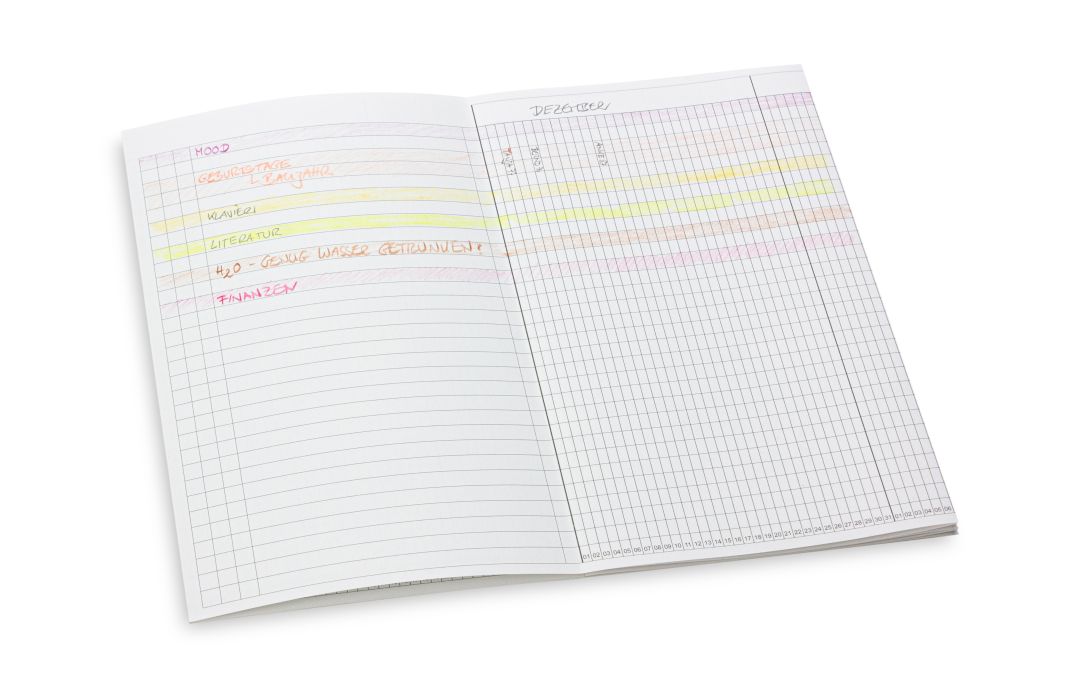 DEZEMBER
MOOD
GEBURTSTAGE
L BAUJAHR
KLAVIER
LITERATUR
H2O - GENUG WASSER GETRUNKEN?
FINANZEN
01 02 03 04 05 06 07 08 09 10 11 12 13 14 15 16 17 18 19 20 21 22 23 24 25 26 27 28 29 30 31 01 02 03 04 05 06